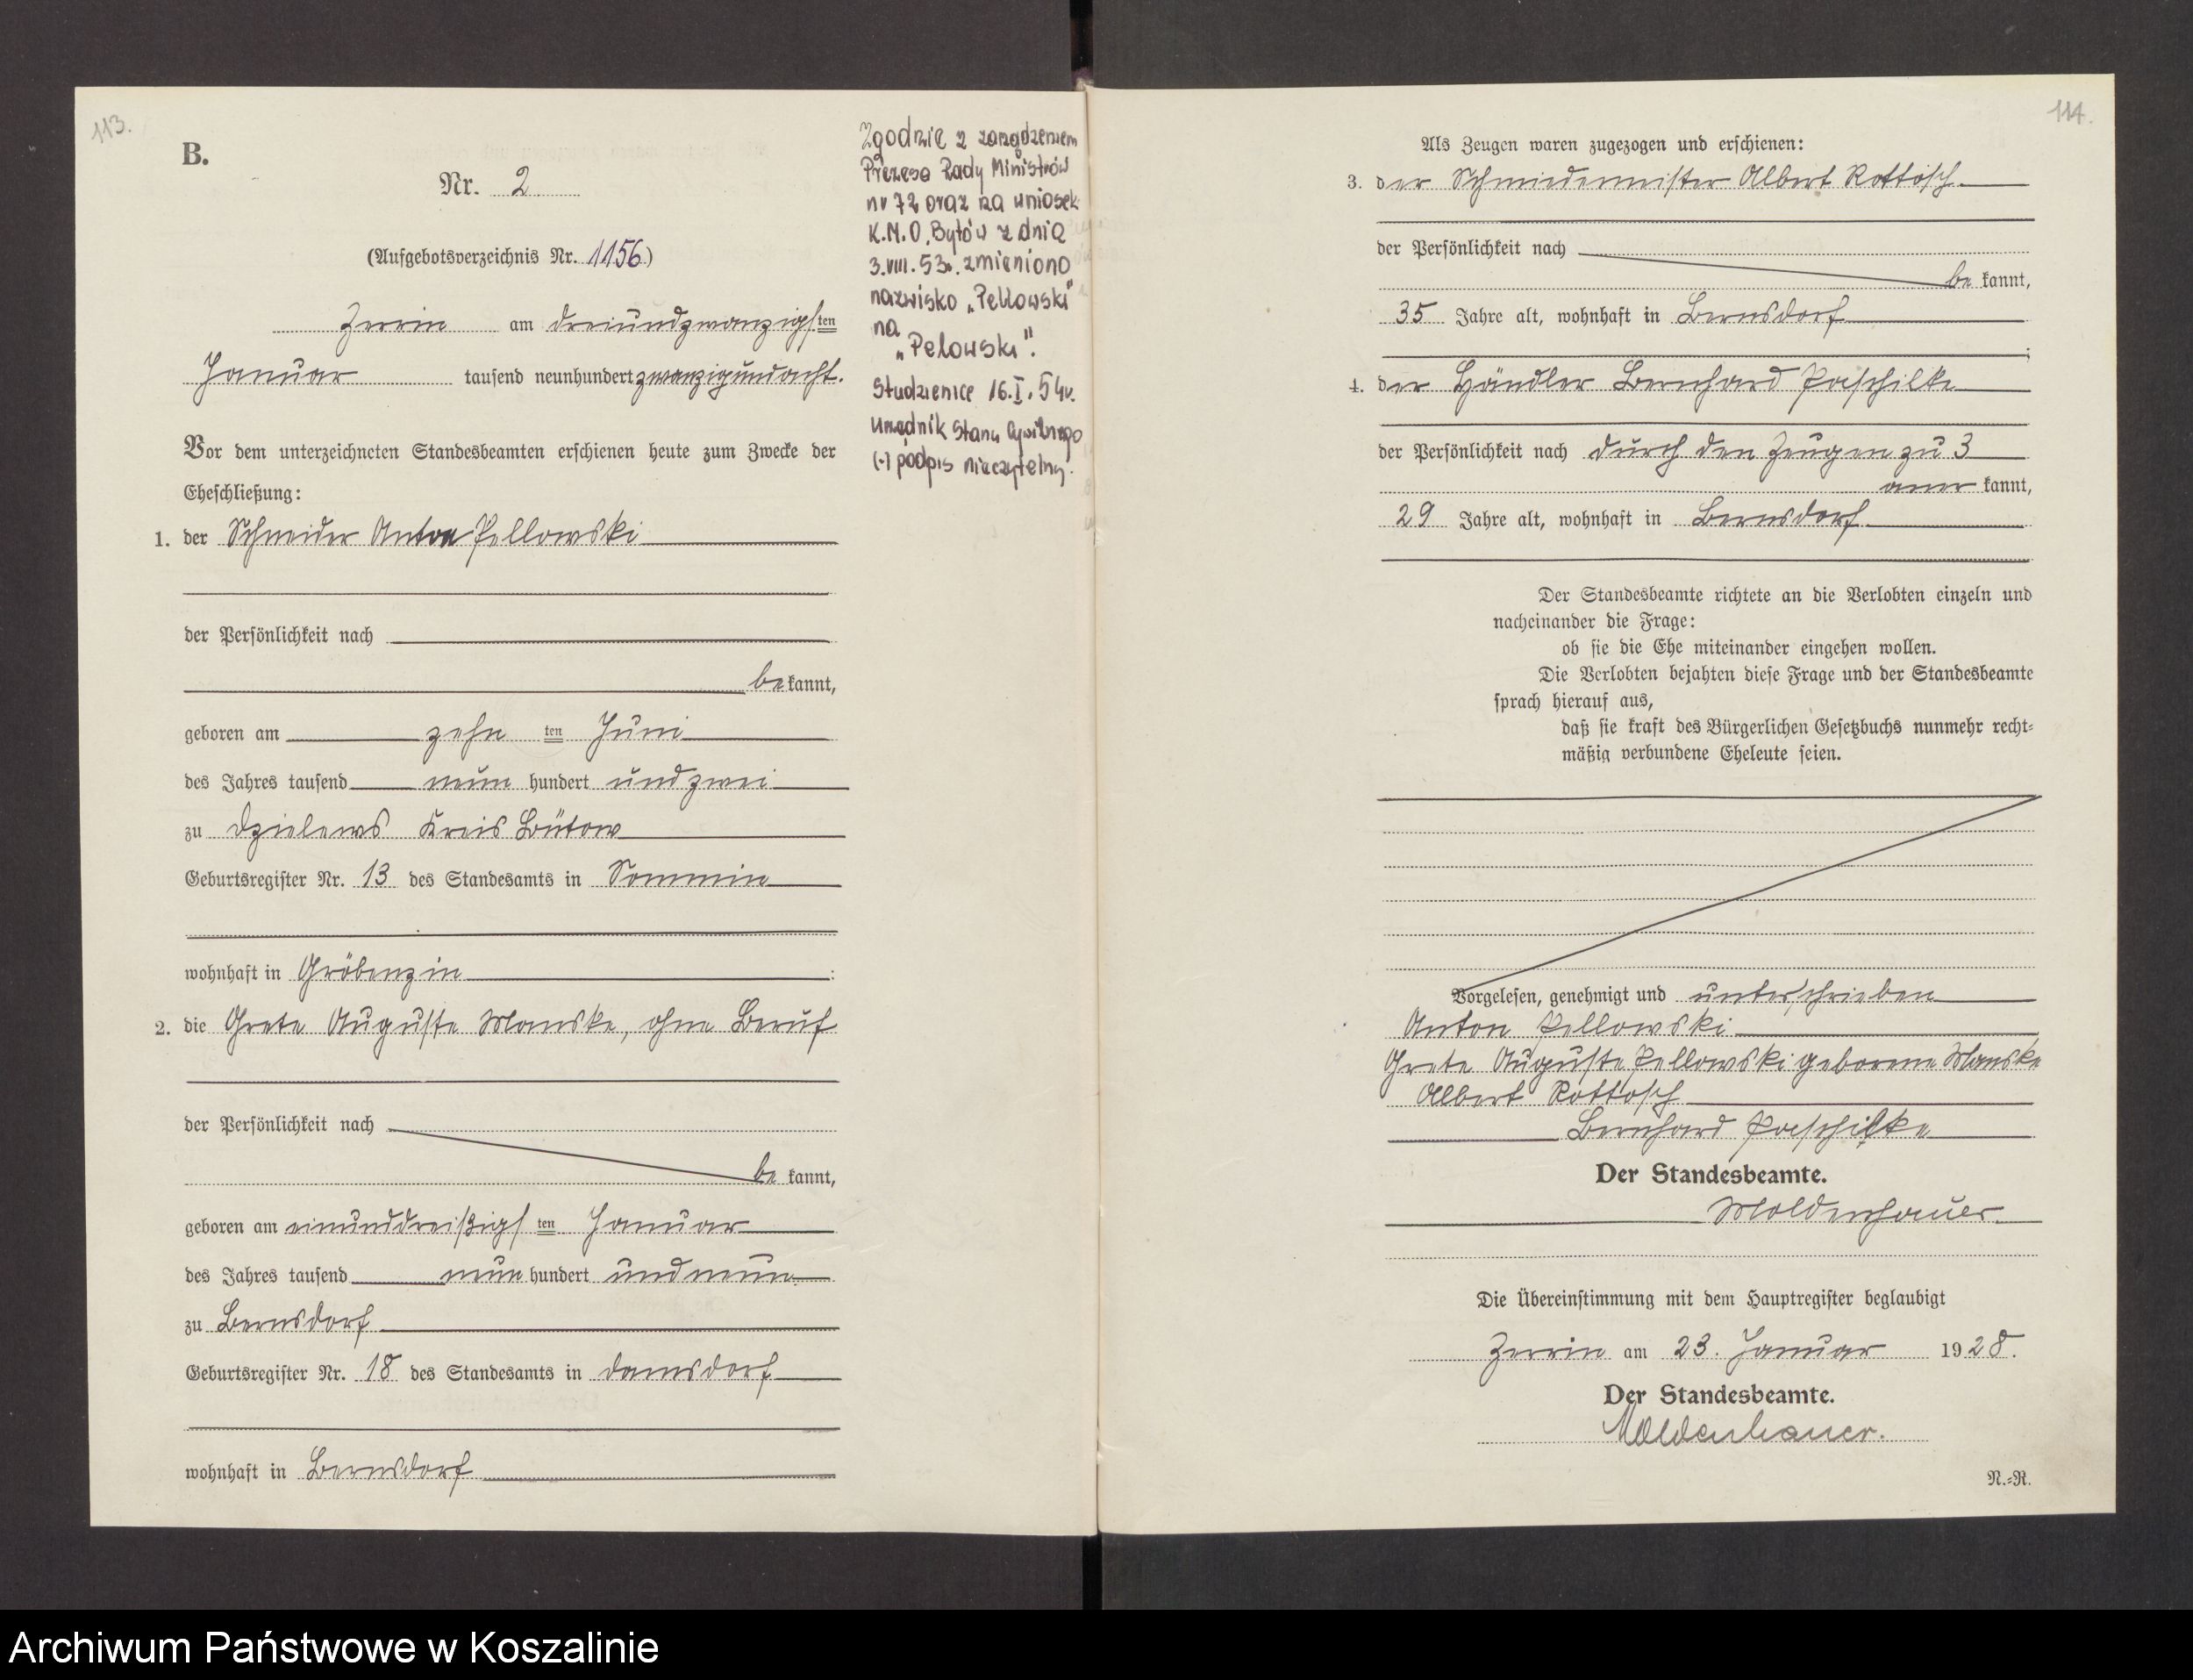 113.
B.
Nr. 2
(Aufgebotsverzeichnis Nr. 1156)
Zerrin am dreiundzwanzigsten
Januar tausend neunhundert zwanzigundacht.
Vor dem unterzeichneten Standesbeamten erschienen heute zum Zwecke der
Eheschließung:
1. der Schneider Anton Pellowski
der Persönlichkeit nach
bekannt,
geboren am zehn ten Juni
des Jahres tausend neun hundert und zwei
zu Dzielews Kreis Bütow
Geburtsregister Nr. 13 des Standesamts in Sommin
wohnhaft in Gröbenzin :
2. die Grete Auguste Manske, ohne Beruf
der Persönlichkeit nach
be kannt,
geboren am einunddreißigs ten Januar
des Jahres tausend neun hundert und neun
zu Bernsdorf
Geburtsregister Nr. 18 des Standesamts in Damsdorf
wohnhaft in Bernsdorf
Zgodnie z zarządzeniem
Prezesa Rady Ministrów
nr 72 oraz na wniosek
K.M.O. Bytów z dnia
3.VIII.53r. zmieniono
nazwisko „Pellowski"
na
„Pelowski".
Studzienice 16.I.54r.
Urzędnik Stanu Cywilnego
(-) podpis nieczytelny.
114.
Als Zeugen waren zugezogen und erschienen:
3. der Schmiedemeister Albert Rottösch
der Persönlichkeit nach
be kannt,
35 Jahre alt, wohnhaft in Bernsdorf
;
4. der Händler Bernhard Poeschilke
der Persönlichkeit nach durch den Zeugen zu 3
aner kannt,
29 Jahre alt, wohnhaft in Bernsdorf
Der Standesbeamte richtete an die Verlobten einzeln und
nacheinander die Frage:
ob sie die Ehe miteinander eingehen wollen.
Die Verlobten bejahten diese Frage und der Standesbeamte
sprach hierauf aus,
daß sie kraft des Bürgerlichen Gesetzbuchs nunmehr recht-
mäßig verbundene Eheleute seien.
Vorgelesen, genehmigt und unterschrieben
Anton Pellowski
Grete Auguste Pellowski geborene Manske
Albert Rottösch
Bernhard Poeschilke
Der Standesbeamte.
Moldenhauer.
Die Übereinstimmung mit dem Hauptregister beglaubigt
Zerrin am 23. Januar 1928.
Der Standesbeamte.
Moldenhauer.
N.-R.
Archiwum Państwowe w Koszalinie